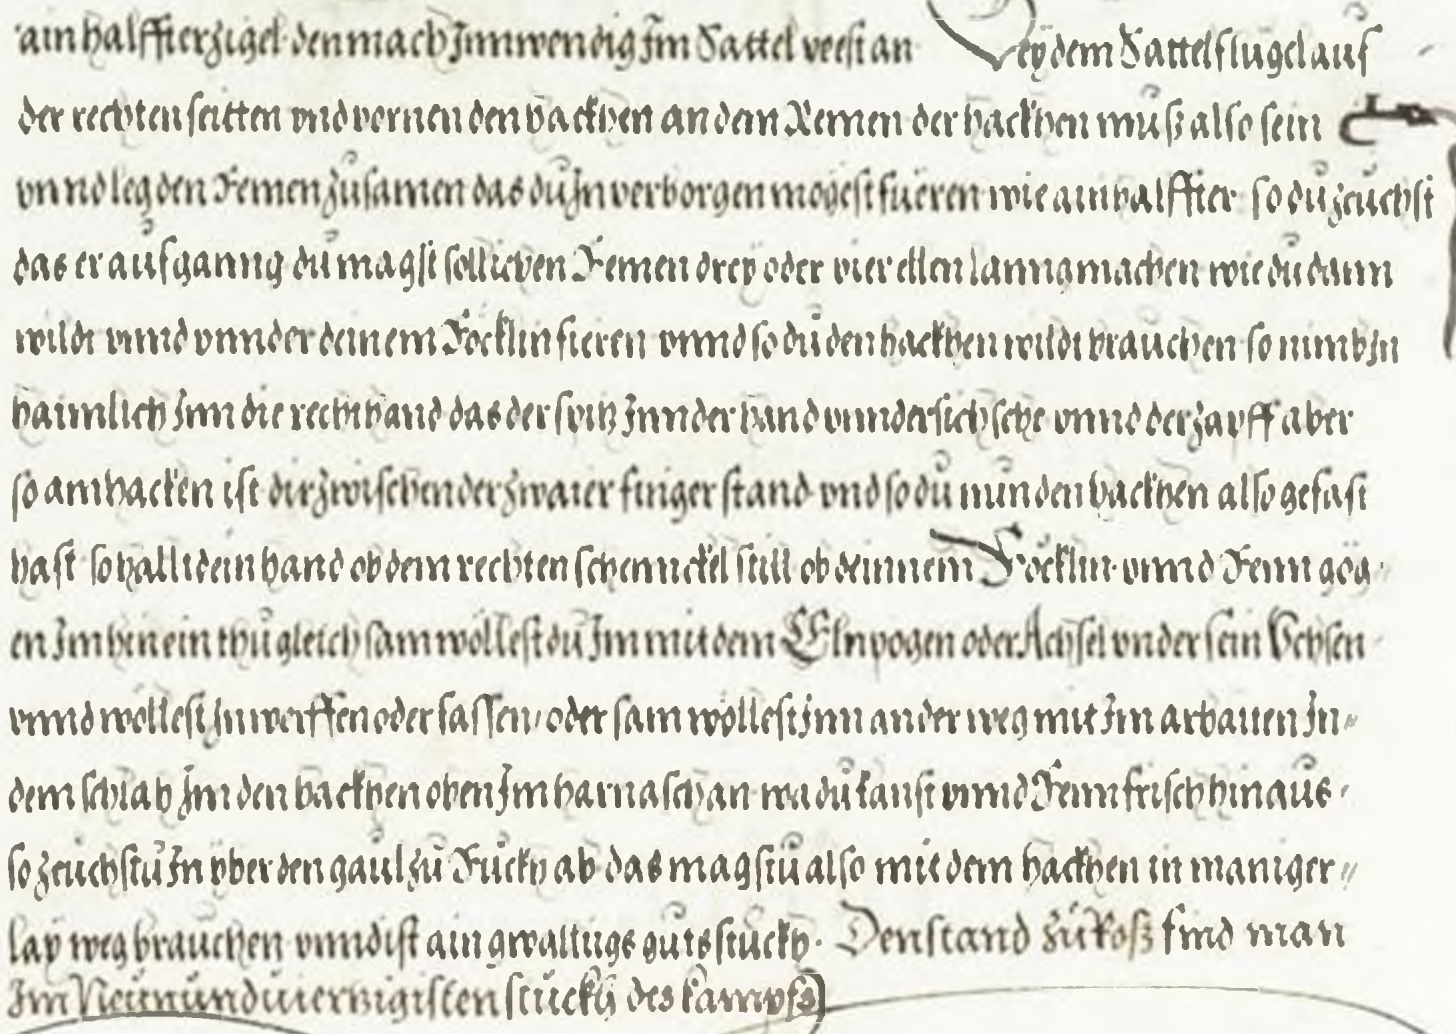 ain halffterzigel den mach Innwendig Im Sattel veest an Beÿ dem Sattelflügel auf
der rechten seitten vnd vornen den hackhen an dem Remen der hackhen mŭß also sein
vnnd leg den remen zŭsamen das dŭ In verborgen mögest füeren wie ain halffter so dŭ zeŭchst
das er aŭfganng dŭ magst sollichen Remen dreÿ oder vier ellen lanng machen wie dŭ dann
wildt vnnd vnnder deinem Röcklin fieren vnnd so dŭ den hackhen wildt braŭchen so nimb In
haimlich Inn die recht hand das der spitz Inn der hand vnndersich sehe vnnd der zapff aber
so am hacken ist dir zwischen der zwaier finger stand vnd so dŭ nŭn den hackhen also gefast
hast so hallt dein hand ob dem rechten schennckel still ob deinnem Röcklin vnnd Renn gög
en Im hinein thŭ gleich sam wöllest dŭ Im mit dem Elnpogen oder Achsel vnder sein Vchsen
vnnd wöllest In werffen oder fassen, oder sam wöllest Inn ander weg mit Im arbaiten In
dem schlah Im den hackhen oben Im harnasch an wa dŭ kanst vnnd Renn frisch hinaŭs
so zeŭchstŭ In vber den gaŭl zŭ Rŭckh ab das magstŭ also mit dem hackhen in maniger
laÿ weg braŭchen vnnd ist ain gwalltigs gŭts stuckh. Den stand zŭ Roß find man
Im Neŭnŭndvierzigisten stuckh des kampfs